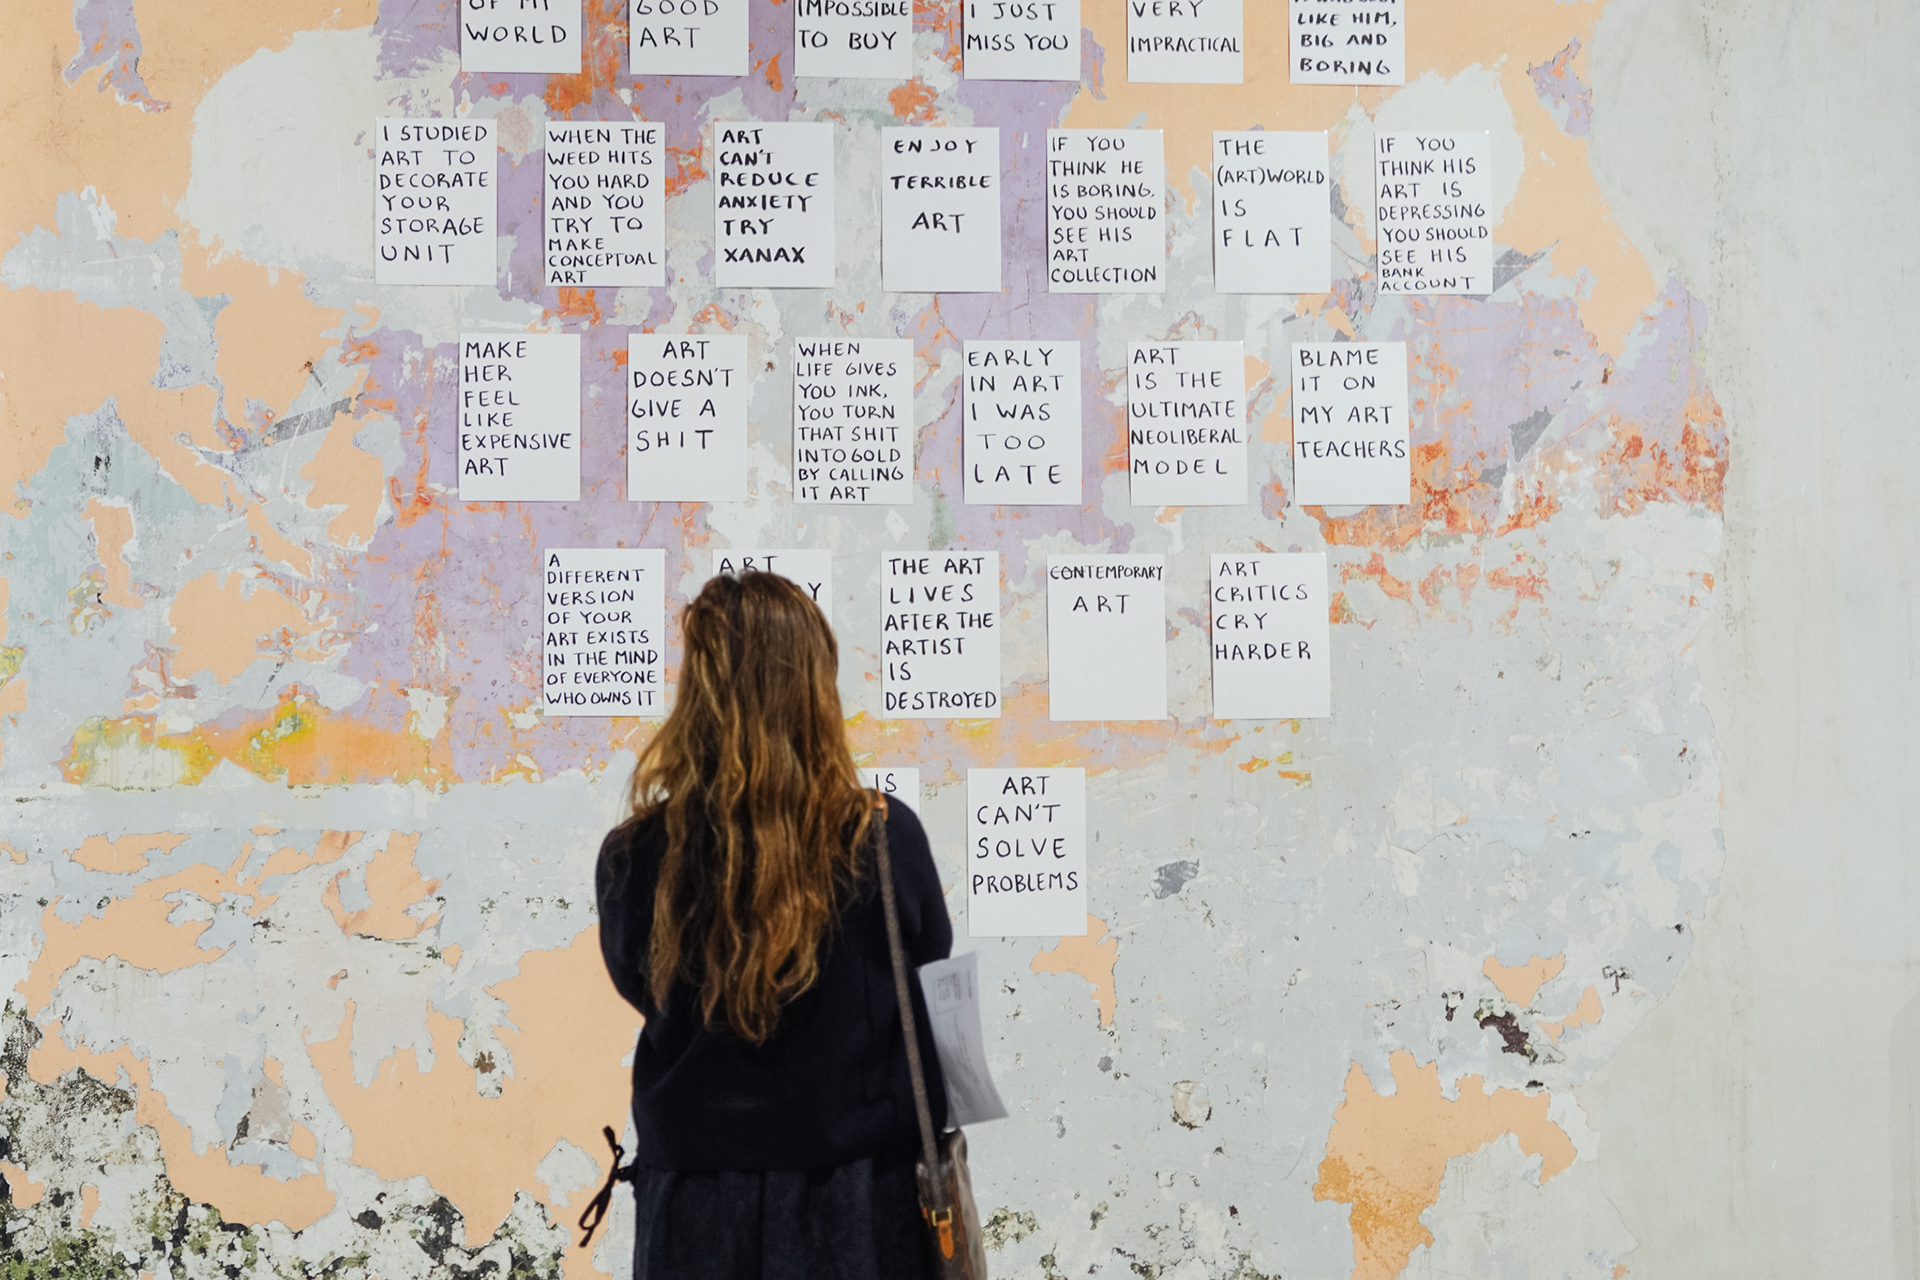 OF MY
WORLD
GOOD
ART
IMPOSSIBLE
TO BUY
I JUST
MISS YOU
VERY
IMPRACTICAL
LIKE HIM,
BIG AND
BORING
I STUDIED
ART TO
DECORATE
YOUR
STORAGE
UNIT
WHEN THE
WEED HITS
YOU HARD
AND YOU
TRY TO
MAKE
CONCEPTUAL
ART
ART
CAN'T
REDUCE
ANXIETY
TRY
XANAX
ENJOY
TERRIBLE
ART
IF YOU
THINK HE
IS BORING,
YOU SHOULD
SEE HIS
ART
COLLECTION
THE
(ART)WORLD
IS
FLAT
IF YOU
THINK HIS
ART IS
DEPRESSING
YOU SHOULD
SEE HIS
BANK
ACCOUNT
MAKE
HER
FEEL
LIKE
EXPENSIVE
ART
ART
DOESN'T
GIVE A
SHIT
WHEN
LIFE GIVES
YOU INK,
YOU TURN
THAT SHIT
INTO GOLD
BY CALLING
IT ART
EARLY
IN ART
I WAS
TOO
LATE
ART
IS THE
ULTIMATE
NEOLIBERAL
MODEL
BLAME
IT ON
MY ART
TEACHERS
A
DIFFERENT
VERSION
OF YOUR
ART EXISTS
IN THE MIND
OF EVERYONE
WHO OWNS IT
ART
THE ART
LIVES
AFTER THE
ARTIST
IS
DESTROYED
CONTEMPORARY
ART
ART
CRITICS
CRY
HARDER
IS
ART
CAN'T
SOLVE
PROBLEMS